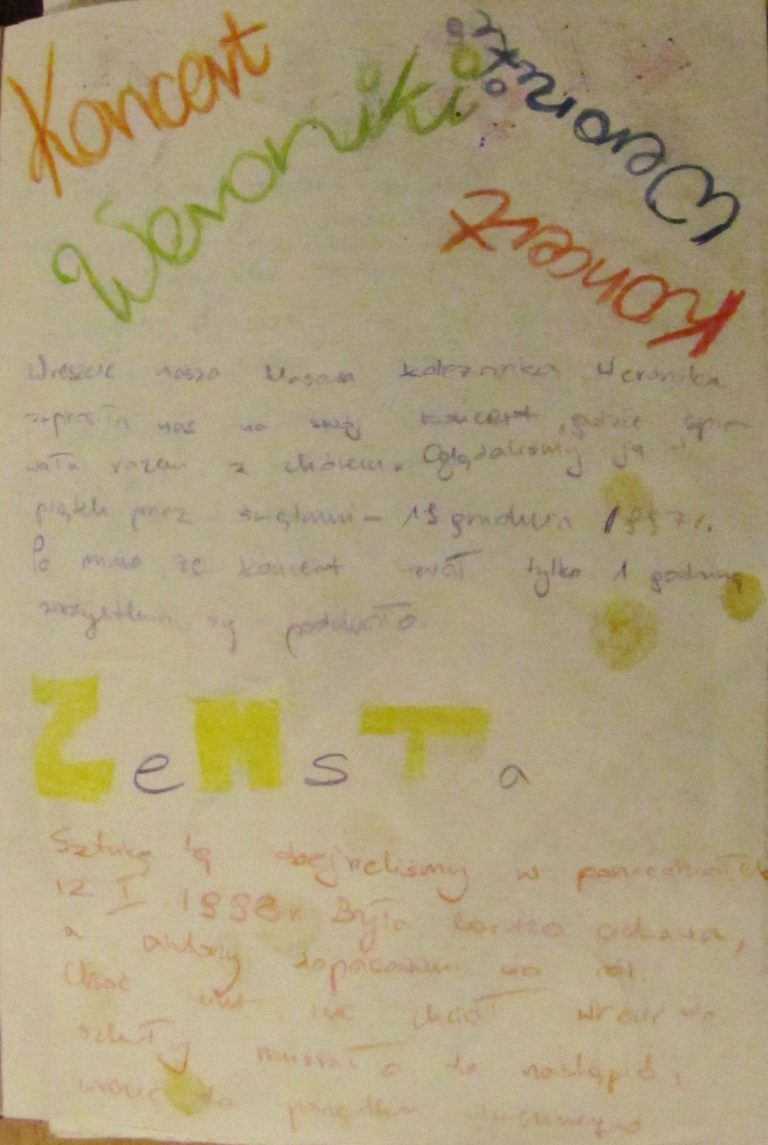 Koncert
Weroniki
Koncert
Weroniki
Wreszcie nasza koleżanka Weronika
zaprosiła nas na swój koncert, gdzie śpie-
wała razem z chórem. Oglądaliśmy ją
piątek przed świętami - 19 grudnia 1997r.
Po mimo że koncert trwał tylko 1 godzinę
wszystkim się podobało
ZeMsTa
Sztukę tą obejrzeliśmy w poniedziałek
12 I 1998r Była bardzo ciekawa,
a aktorzy dopasowani do ról.
Choć nikt nie chciał wrócić do
szkoły musiało to nastąpić,